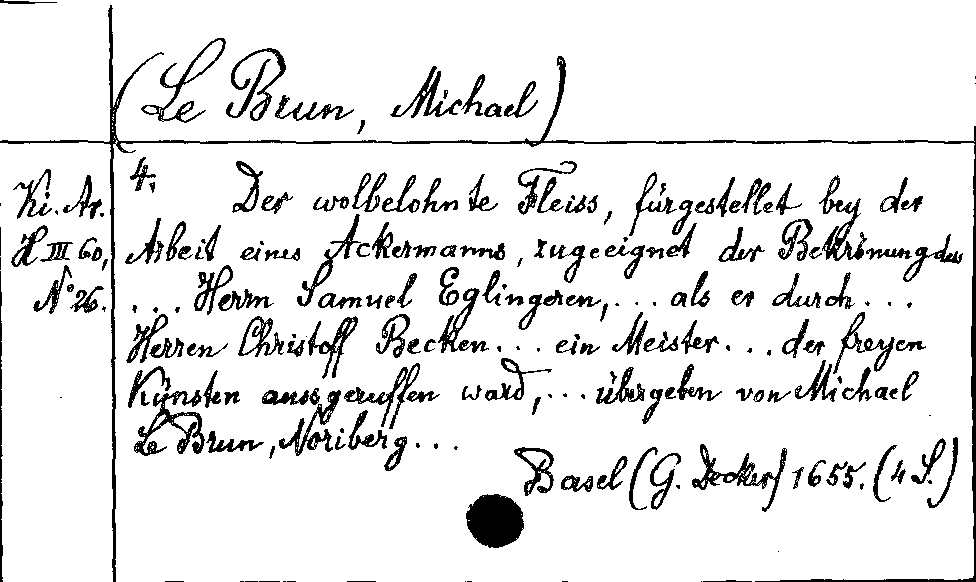 (Le Brun, Michael)
4.
Ki. Ar.
H III 60,
No 26.
Der wolbelohnte Fleiss, fürgestellet bey der
Arbeit eines Ackermanns, zugeeignet der Bekrönung des
... Herrn Samuel Eglingeren, ... als er durch ...
Herren Christoff Becken ... ein Meister ... der freyen
Künsten aussgeruffen ward, ... übergeben von Michael
Le Brun, Noriberg ...
Basel (G. Decker) 1655. (4 S.)